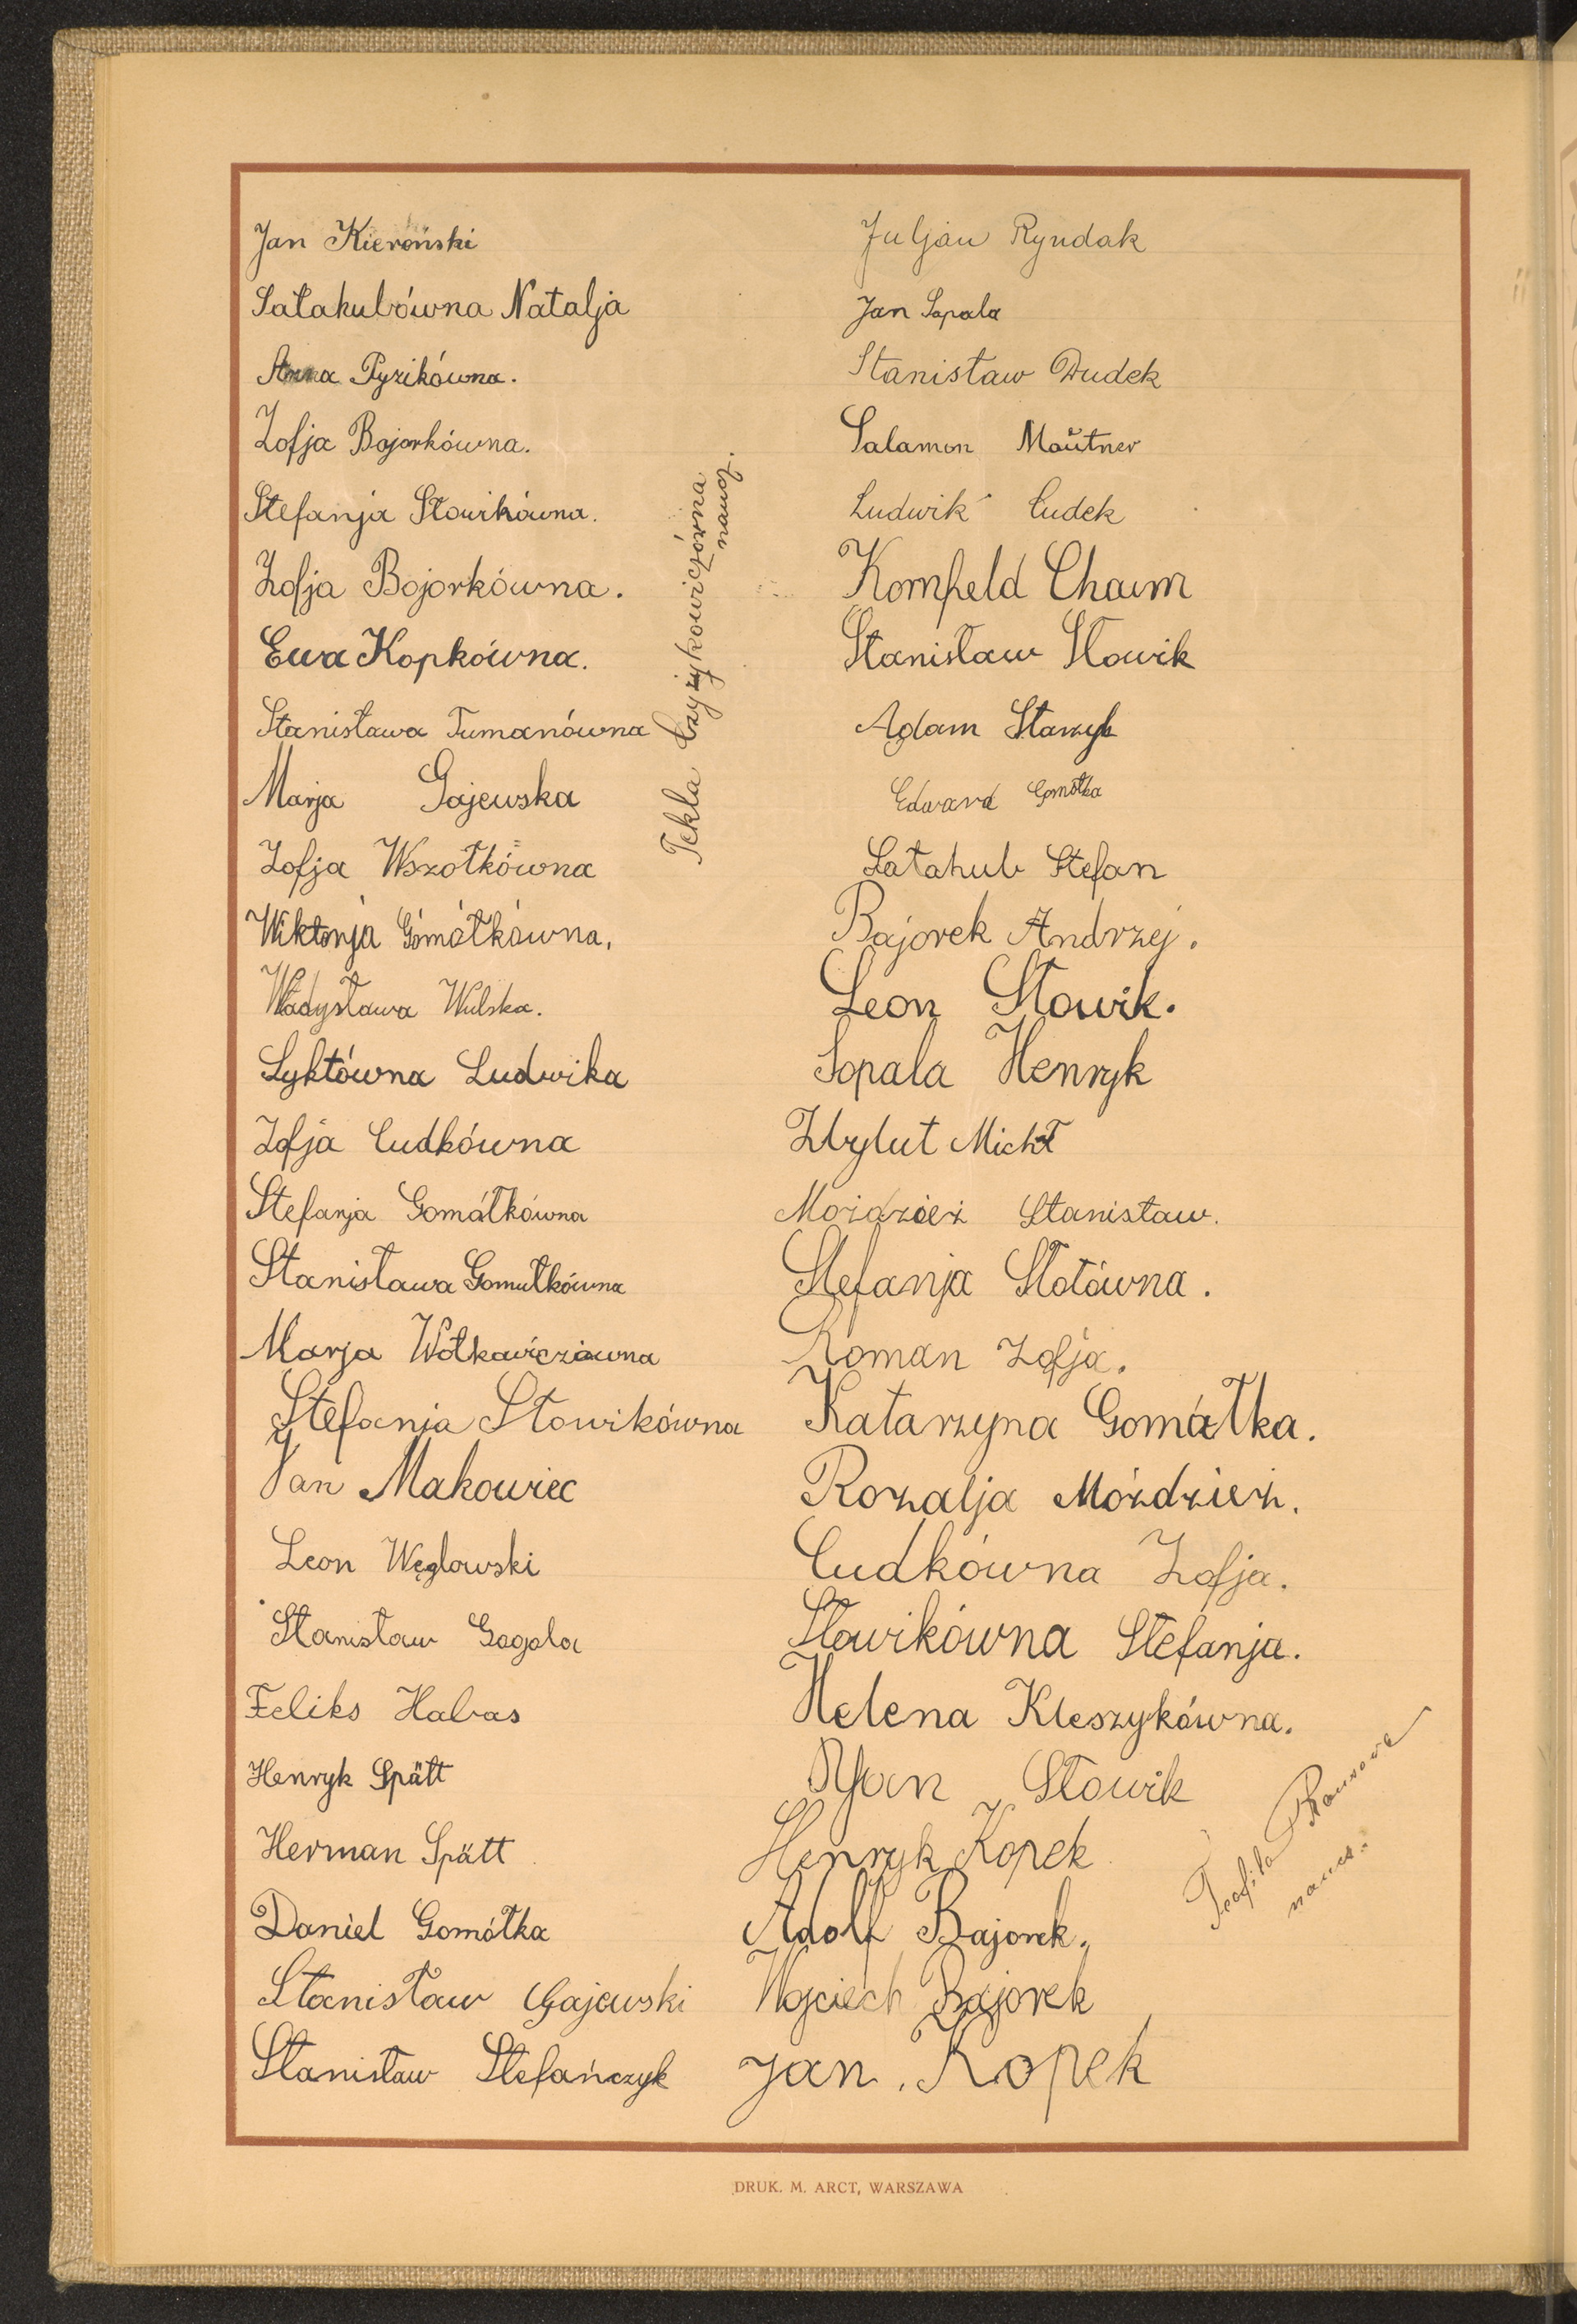 Jan Kieroński
Sałakubówna Natalja
Anna Pyzikówna.
Zofja Bajorkówna.
Stefanja Słowikówna.
Zofja Bojorkówna.
Ewa Kopkówna.
Stanisława Tumanówna
Marja Gajewska
Zofja Wszołkówna
Wiktorja Gómółkówna,
Władysława Wulska.
Łyktówna Ludwika
Zofja Cudkówna
Stefanja Gomółkówna
Stanisława Gomułkówna
Marja Wołkowiczówna
Stefanja Słowikówna
Jan Makowiec
Leon Węglowski
Stanisław Gagola
Feliks Halvas
Henryk Spätt
Herman Spätt
Daniel Gomółka
Stanisław Gajewski
Stanisław Stefańczyk
Tekla Czyżykowiczówna
naucz.
Juljan Ryndak
Jan Sopala
Stanisław Dudek
Salamon Maŭtner
Ludwik Cudek
Kornfeld Chaim
Stanisław Słowik
Adam Starzyk
Edward Gomółka
Sałakub Stefan
Bajorek Andrzej.
Leon Słowik.
Sopala Henryk
Zbylut Michał
Moździeż Stanisław.
Stefanja Słotówna.
Roman Zofja.
Katarzyna Gomółka.
Rozalja Móździeż.
Cudkówna Zofja.
Słowikówna Stefanja.
Helena Kleszykówna.
Jan Słowik
Henryk Kopek
Adolf Bajorek.
Wojciech Bajorek
Jan. Kopek
Teofila
naucz.
DRUK. M. ARCT, WARSZAWA